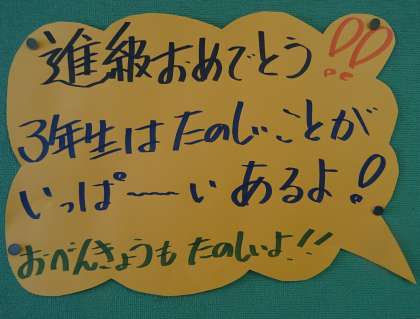 進級おめでとう!!
3年生はたのしいことが
いっぱ〜いあるよ!
おべんきょうもたのしいよ!!